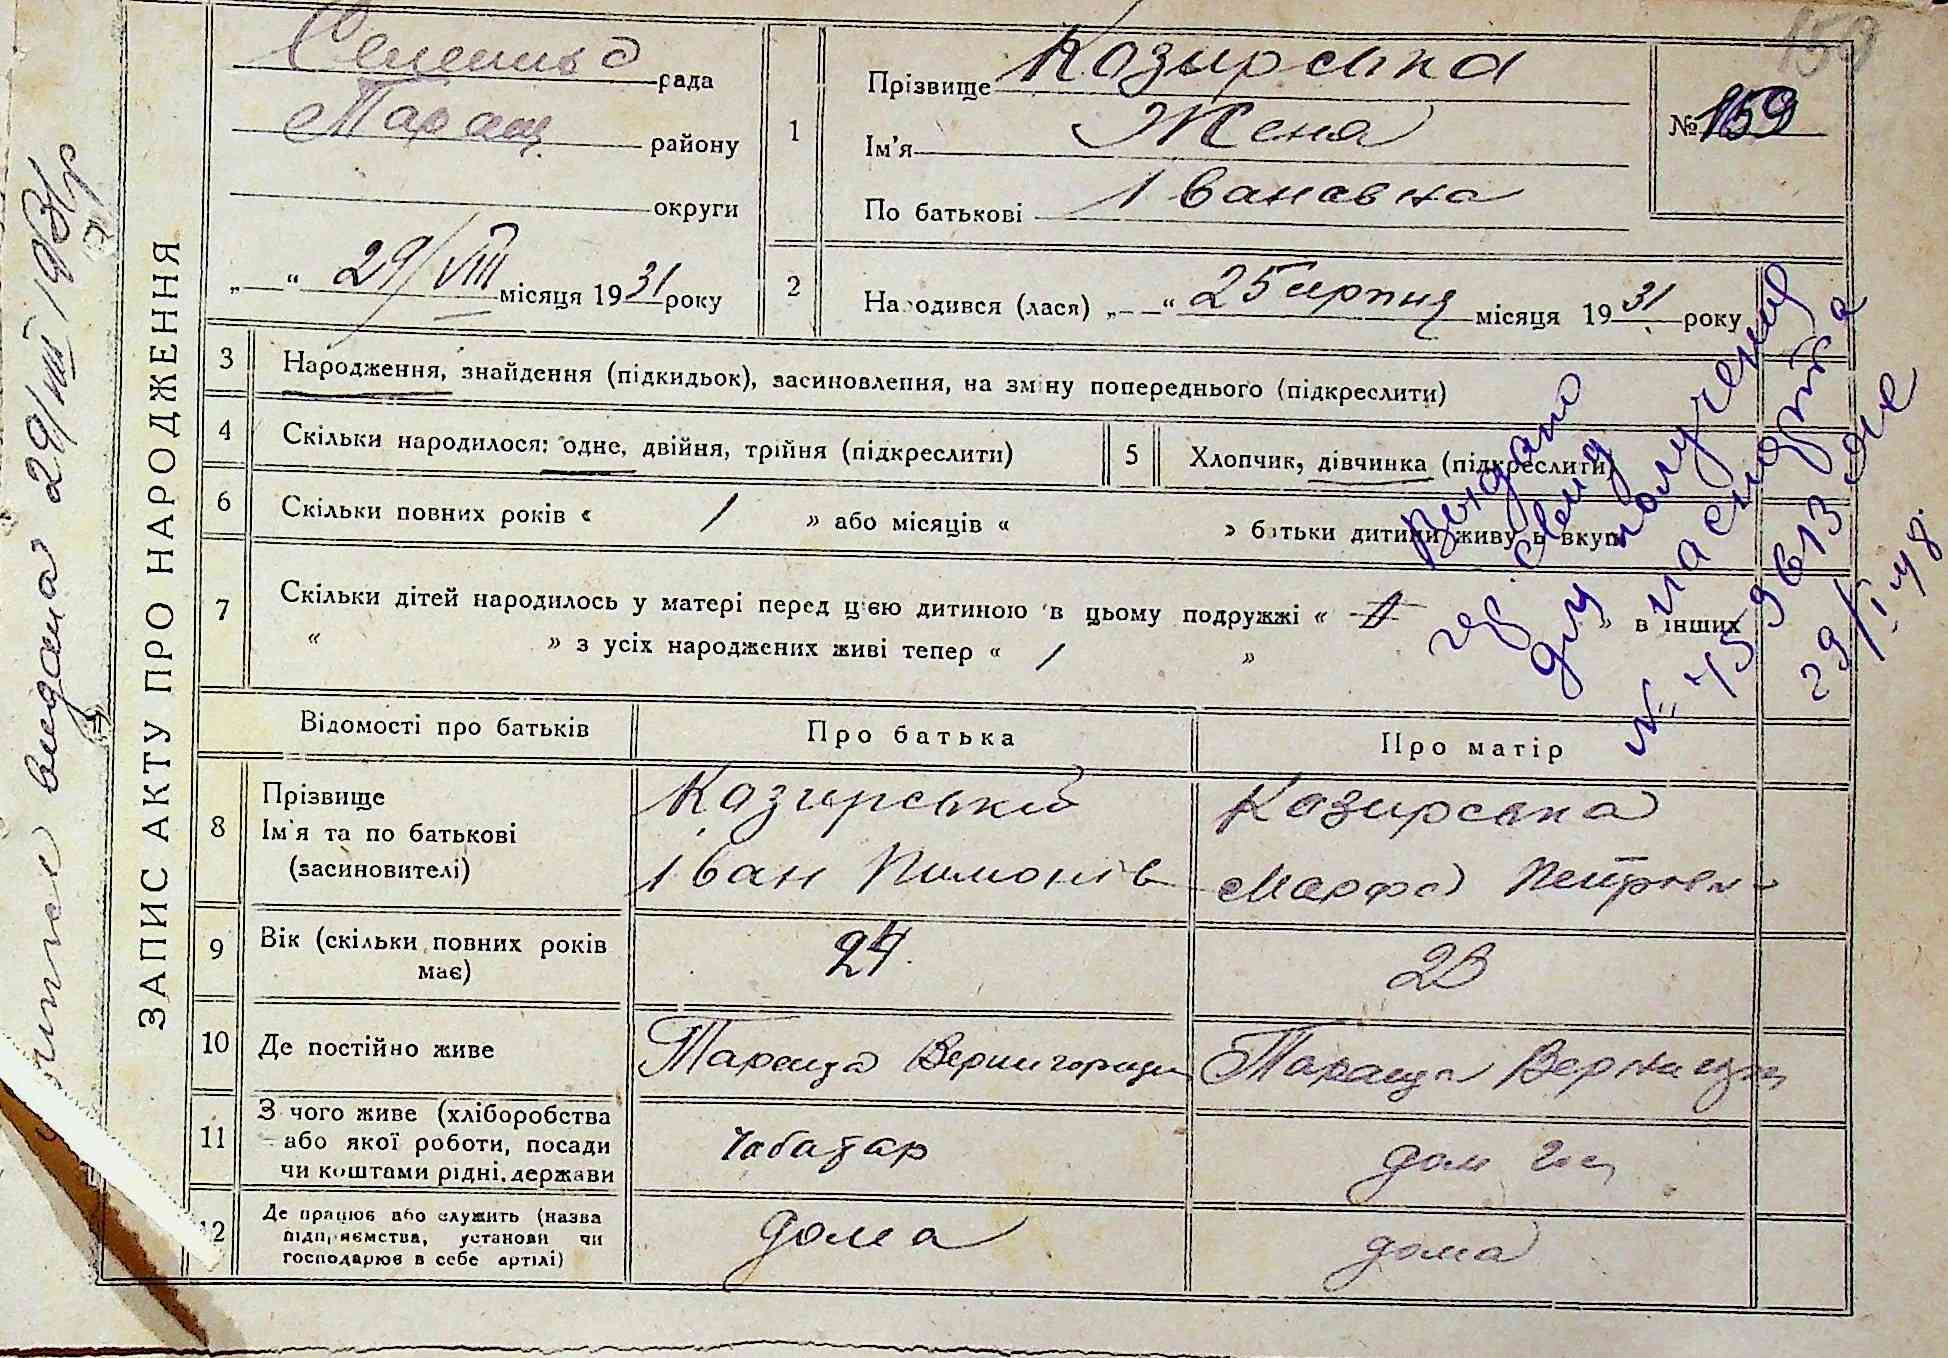 159
рада
Таращ. району
округи
„ “ 29/VIII місяця 1931 року
1
Прізвище Козирська
Ім'я Женя
По батькові Івановна
№ 159
2
Народився (лася) „ “ 25 серпня місяця 1931 року
ЗАПИС АКТУ ПРО НАРОДЖЕННЯ
видана 29/VIII 1931 р
3 Народження, знайдення (підкидьок), засиновлення, на зміну попереднього (підкреслити)
4 Скільки народилося: одне, двійня, трійня (підкреслити)
5 Хлопчик, дівчинка (підкреслити)
6 Скільки повних років « 1 » або місяців « » батьки дитини живуть вкупі
7 Скільки дітей народилось у матері перед цією дитиною в цьому подружжі « » в інших
« » з усіх народжених живі тепер « 1 »
Выдано
след
для получения
паспорта
29/I 48
Відомості про батьків
Про батька
Про матір
8 Прізвище
Ім'я та по батькові
(засиновителі)
Козирський
Іван Пимонів
Козирська
Марфа Петровн
9 Вік (скільки повних років
має)
24
23
10 Де постійно живе
Тараща
Тараща
11 З чого живе (хліборобства
або якої роботи, посади
чи коштами рідні, держави
Чоботар
дом гос
12 Де працює або служить (назва
підприємства, установи чи
господарює в себе артілі)
дома
дома